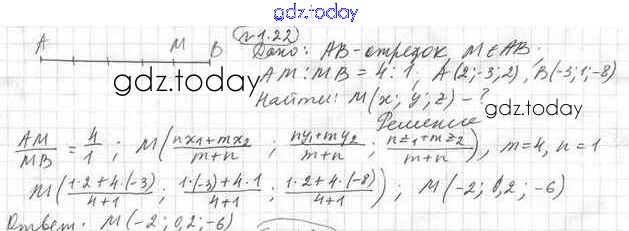 gdz.today
√1.22
A M B
Дано: AB - отрезок, M∈AB;
AM : MB = 4 : 1, A(2;-3;2), B(-3;1;-8)
gdz.today
Найти: M(x; y; z) - ?
gdz.today
Решение
AM/MB = 4/1 ; M((nx₁+mx₂)/(m+n) ; (ny₁+my₂)/(m+n) ; (nz₁+mz₂)/(m+n)), m=4, n=1
M((1·2+4·(-3))/(4+1) ; (1·(-3)+4·1)/(4+1) ; (1·2+4·(-8))/(4+1)) ; M(-2; 0,2; -6)
Ответ: M(-2; 0,2; -6)